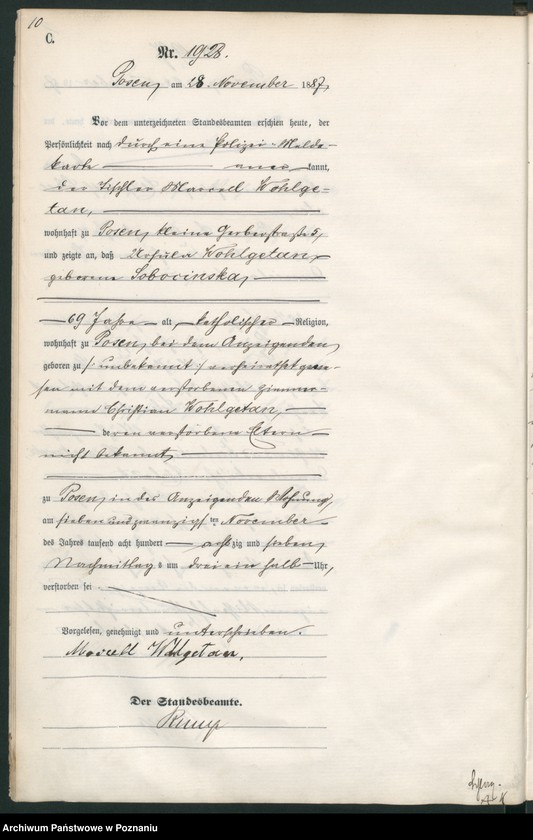 10
C.
Nr. 1928.
Posen, am 28. November 1887,
Vor dem unterzeichneten Standesbeamten erschien heute, der
Persönlichkeit nach durch eine Polizei-Melde-
karte aner kannt,
der Tischler Marcell Wohlge-
tan,
wohnhaft zu Posen, kleine Gerberstraße 5,
und zeigte an, daß Ursula Wohlgetan,
geborene Sobocinska,
69 Jahre alt, katholischer Religion,
wohnhaft zu Posen, bei dem Anzeigenden,
geboren zu /: unbekannt :/ verheirathet gewe-
sen mit dem verstorbenen Zimmer-
manne Christian Wohlgetan,
deren verstorbene Eltern
nicht bekannt,
zu Posen, in des Anzeigenden Wohnung,
am sieben und zwanzigs ten November
des Jahres tausend acht hundert acht zig und sieben,
Nachmittag s um drei ein halb Uhr,
verstorben sei.
Vorgelesen, genehmigt und unterschrieben.
Marcell Wolgetan,
Der Standesbeamte.
Archiwum Państwowe w Poznaniu